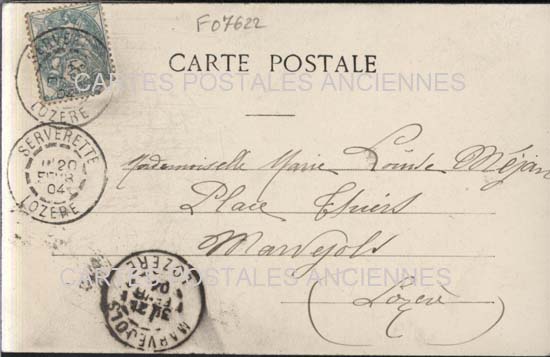 F07622
CARTE POSTALE
CARTES POSTALES ANCIENNES
SERVERETTE
LOZÈRE
SERVERETTE
20
FEVR
04
LOZÈRE
Mademoiselle Marie Louise Méjan
Place Thiers
Marvejols
(Lozère)
CARTES POSTALES ANCIENNES
MARVEJOLS
LOZÈRE
04